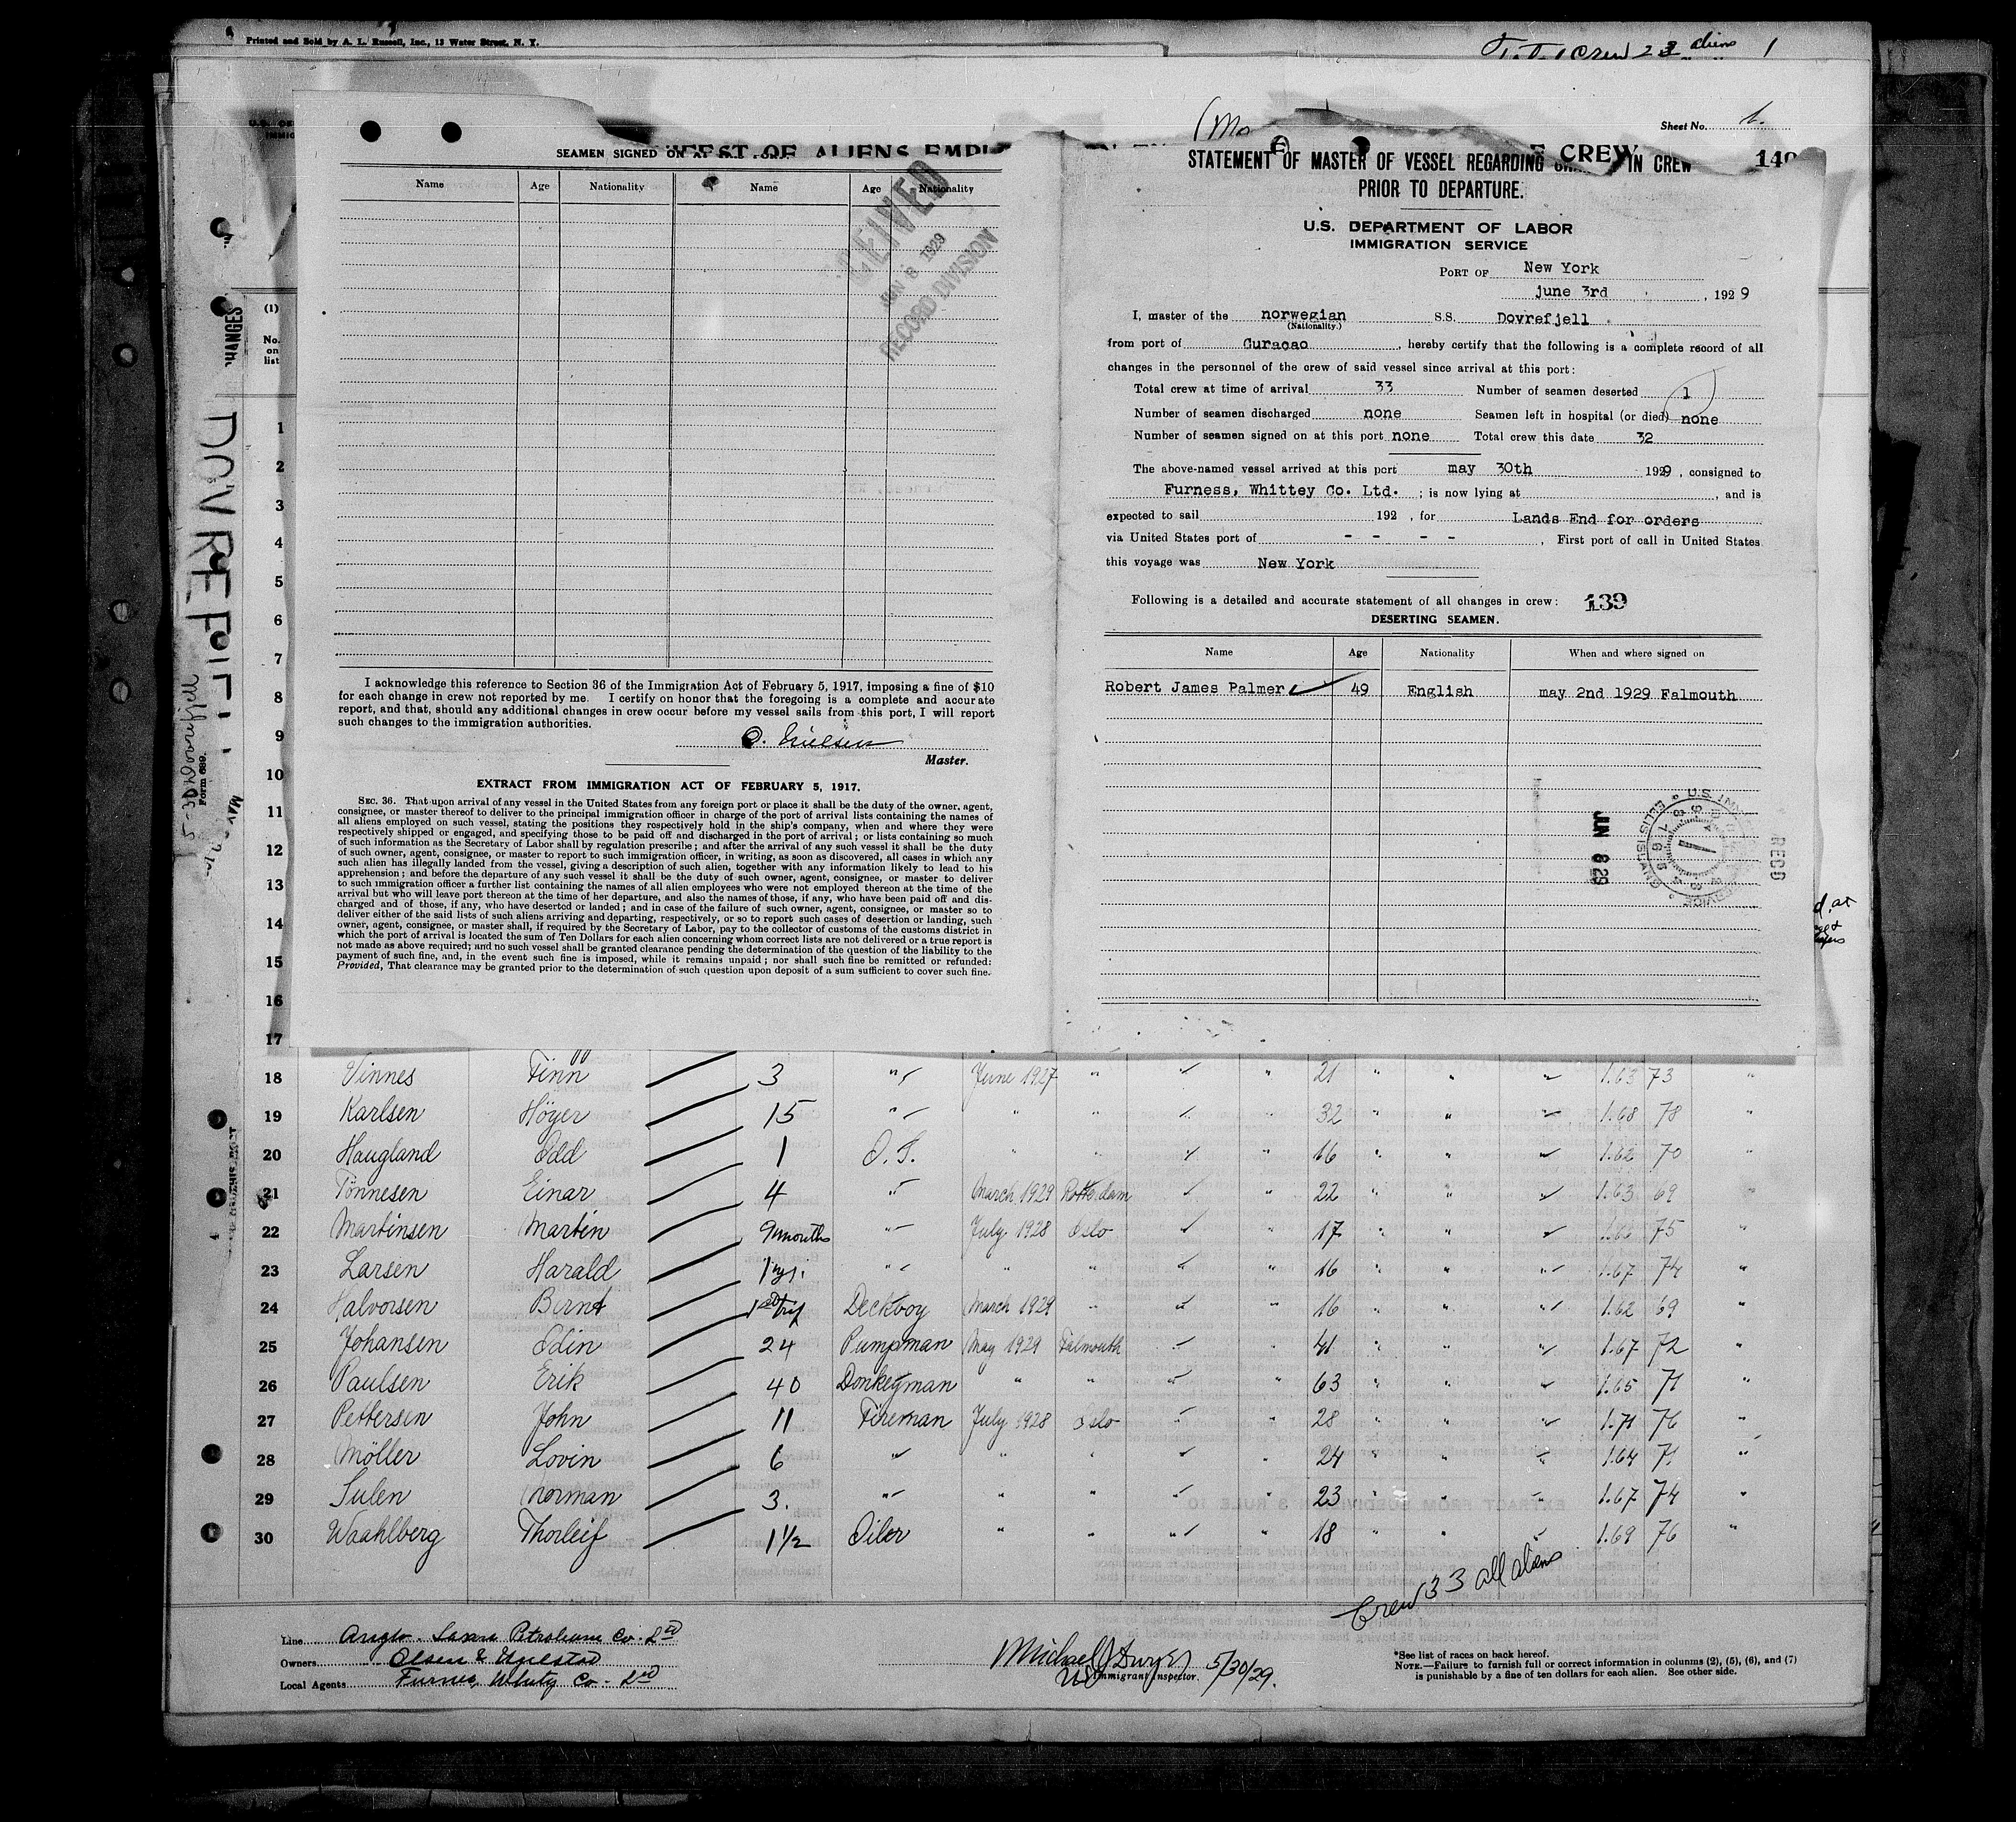 Printed and Sold by A. L. Russell, Inc., 13 Water Street, N. Y.
Total Crew 23 aliens 1
Sheet No. 1.
SEAMEN SIGNED ON
Name Age Nationality Name Age Nationality
JUN 8 1929
RECORD DIVISION
I acknowledge this reference to Section 36 of the Immigration Act of February 5, 1917, imposing a fine of $10
for each change in crew not reported by me. I certify on honor that the foregoing is a complete and accurate
report, and that, should any additional changes in crew occur before my vessel sails from this port, I will report
such changes to the immigration authorities.
O. Nielsen
Master.
EXTRACT FROM IMMIGRATION ACT OF FEBRUARY 5, 1917.
SEC. 36. That upon arrival of any vessel in the United States from any foreign port or place it shall be the duty of the owner, agent,
consignee, or master thereof to deliver to the principal immigration officer in charge of the port of arrival lists containing the names of
all aliens employed on such vessel, stating the positions they respectively hold in the ship's company, when and where they were
respectively shipped or engaged, and specifying those to be paid off and discharged in the port of arrival; or lists containing so much
of such information as the Secretary of Labor shall by regulation prescribe; and after the arrival of any such vessel it shall be the duty
of such owner, agent, consignee, or master to report to such immigration officer, in writing, as soon as discovered, all cases in which any
such alien has illegally landed from the vessel, giving a description of such alien, together with any information likely to lead to his
apprehension; and before the departure of any such vessel it shall be the duty of such owner, agent, consignee, or master to deliver
to such immigration officer a further list containing the names of all alien employees who were not employed thereon at the time of the
arrival but who will leave port thereon at the time of her departure, and also the names of those, if any, who have been paid off and dis-
charged and of those, if any, who have deserted or landed; and in case of the failure of such owner, agent, consignee, or master so to
deliver either of the said lists of such aliens arriving and departing, respectively, or so to report such cases of desertion or landing, such
owner, agent, consignee, or master shall, if required by the Secretary of Labor, pay to the collector of customs of the customs district in
which the port of arrival is located the sum of Ten Dollars for each alien concerning whom correct lists are not delivered or a true report is
not made as above required; and no such vessel shall be granted clearance pending the determination of the question of the liability to the
payment of such fine, and, in the event such fine is imposed, while it remains unpaid; nor shall such fine be remitted or refunded:
Provided, That clearance may be granted prior to the determination of such question upon deposit of a sum sufficient to cover such fine.
STATEMENT OF MASTER OF VESSEL REGARDING IN CREW
PRIOR TO DEPARTURE.
U.S. DEPARTMENT OF LABOR
IMMIGRATION SERVICE
PORT OF New York
june 3rd, 1929
I, master of the norwegian S.S. Dovrefjell
(Nationality.)
from port of Curacao, hereby certify that the following is a complete record of all
changes in the personnel of the crew of said vessel since arrival at this port:
Total crew at time of arrival 33 Number of seamen deserted 1
Number of seamen discharged none Seamen left in hospital (or died) none
Number of seamen signed on at this port none Total crew this date 32
The above-named vessel arrived at this port may 30th 1929, consigned to
Furness, Whittey Co. Ltd. ; is now lying at , and is
expected to sail 192 , for Lands End for orders
via United States port of - - - - , First port of call in United States
this voyage was New York
Following is a detailed and accurate statement of all changes in crew: 139
DESERTING SEAMEN.
Name Age Nationality When and where signed on
Robert James Palmer 49 English may 2nd 1929 Falmouth
JUN 8 29
REC'D
(1)
No. on list
DOVREFJELL
5-30 Dovrefjell
Form 689.
1
2
3
4
5
6
7
8
9
10
11
12
13
14
15
16
17
18 Vinnes Finn 3 " June 1927 " " 21 " " " 1.63 73 "
19 Karlsen Höyer 15 " " " " 32 " " " 1.68 78 "
20 Haugland Odd 1 O.S. " " " 16 " " " 1.62 70 "
21 Tönnesen Einar 4 " March 1929 Rotterdam " 22 " " " 1.63 69 "
22 Martinsen Martin 9 months " July 1928 Oslo " 17 " " " 75 "
23 Larsen Harald 1 yr. " " " " 16 " " " 1.67 74 "
24 Halvorsen Bernt 1st trip Deckboy March 1929 " " 16 " " " 1.62 69 "
25 Johansen Odin 24 Pumpman May 1929 Falmouth " 41 " " " 1.67 72 "
26 Paulsen Erik 40 Donkeyman " " " 63 " " " 1.65 71 "
27 Pettersen John 11 Fireman July 1928 Oslo " 28 " " " 1.71 76 "
28 Möller Lovin 6 " " " " 24 " " " 1.64 71 "
29 Sulen Norman 3. " " " " 23 " " " 1.67 74 "
30 Waahlberg Thorleif 1 1/2 Oiler " " " 18 " " " 1.69 76 "
Crew 33 all aliens
Line Anglo-Saxon Petroleum Co. Ltd
Owners Olsen & Ugelstad
Local Agents Furness Whity Co. Ltd
Michael J Dwyer 5/30/29.
Immigrant Inspector.
*See list of races on back hereof.
NOTE.—Failure to furnish full or correct information in columns (2), (5), (6), and (7)
is punishable by a fine of ten dollars for each alien. See other side.